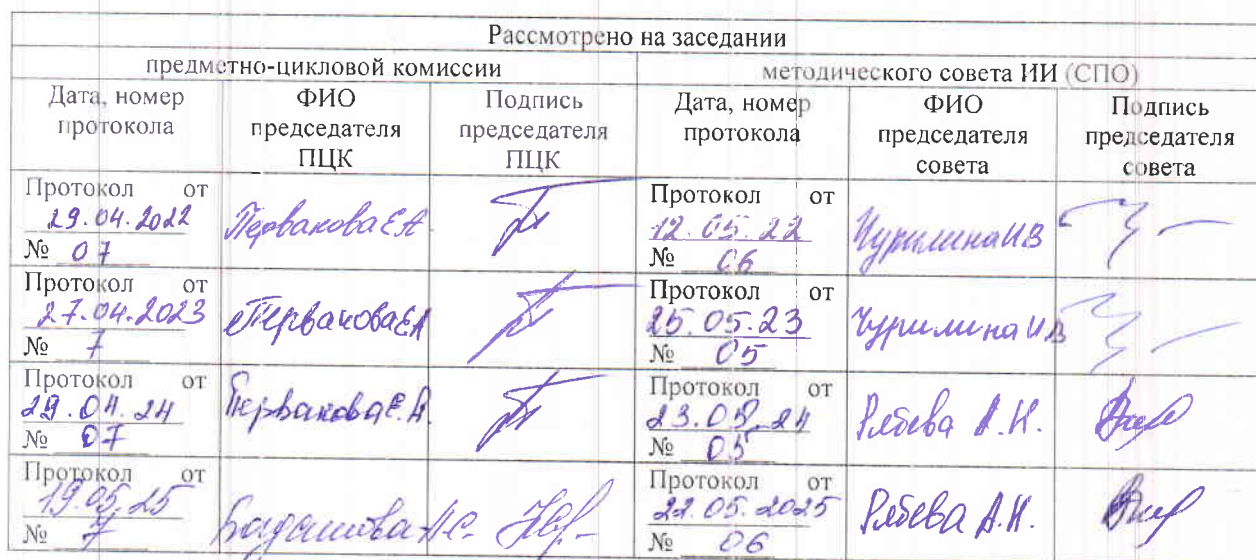 Рассмотрено на заседании
предметно-цикловой комиссии
методического совета ИИ (СПО)
Дата, номер
протокола
ФИО
председателя
ПЦК
Подпись
председателя
ПЦК
Дата, номер
протокола
ФИО
председателя
совета
Подпись
председателя
совета
Протокол от
29.04.2022
№ 07
Перванова ЕА
Протокол от
12.05.22
№ 06
Чурилина ИВ
Протокол от
27.04.2023
№ 7
Перванова ЕА
Протокол от
25.05.23
№ 05
Чурилина ИВ
Протокол от
29.04.24
№ 07
Перванова Е.А.
Протокол от
23.05.24
№ 05
А.Н.
Протокол от
19.05.25
№ 7
Протокол от
22.05.2025
№ 06
А.Н.